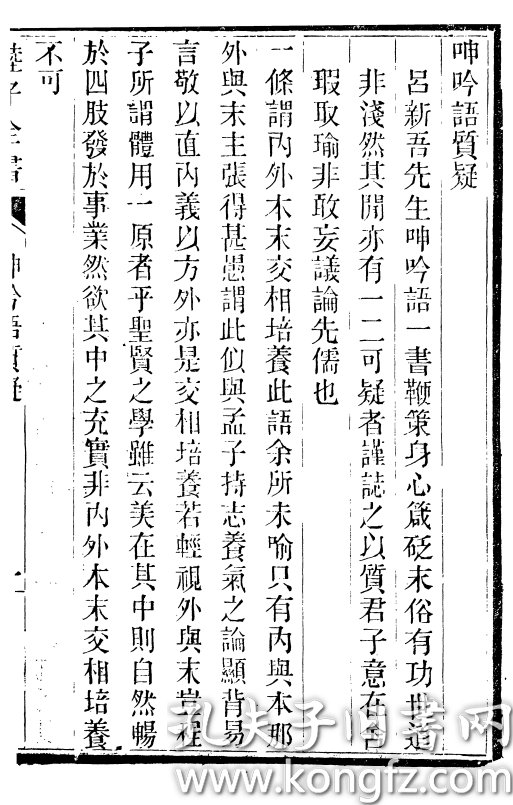 呻吟語質疑
呂新吾先生呻吟語一書鞭策身心箴砭末俗有功世道
非淺然其閒亦有一二可疑者謹誌之以質君子意在舍
瑕取瑜非敢妄議論先儒也
一條謂內外本末交相培養此語余所未喻只有內與本那
外與末主張得甚愚謂此似與孟子持志養氣之論顯背易
言敬以直內義以方外亦是交相培養若輕視外與末豈程
子所謂體用一原者乎聖賢之學雖云美在其中則自然暢
於四肢發於事業然欲其中之充實非內外本末交相培養
不可
陸子全書
呻吟語質疑
一
孔夫子旧書网
www.kongfz.com